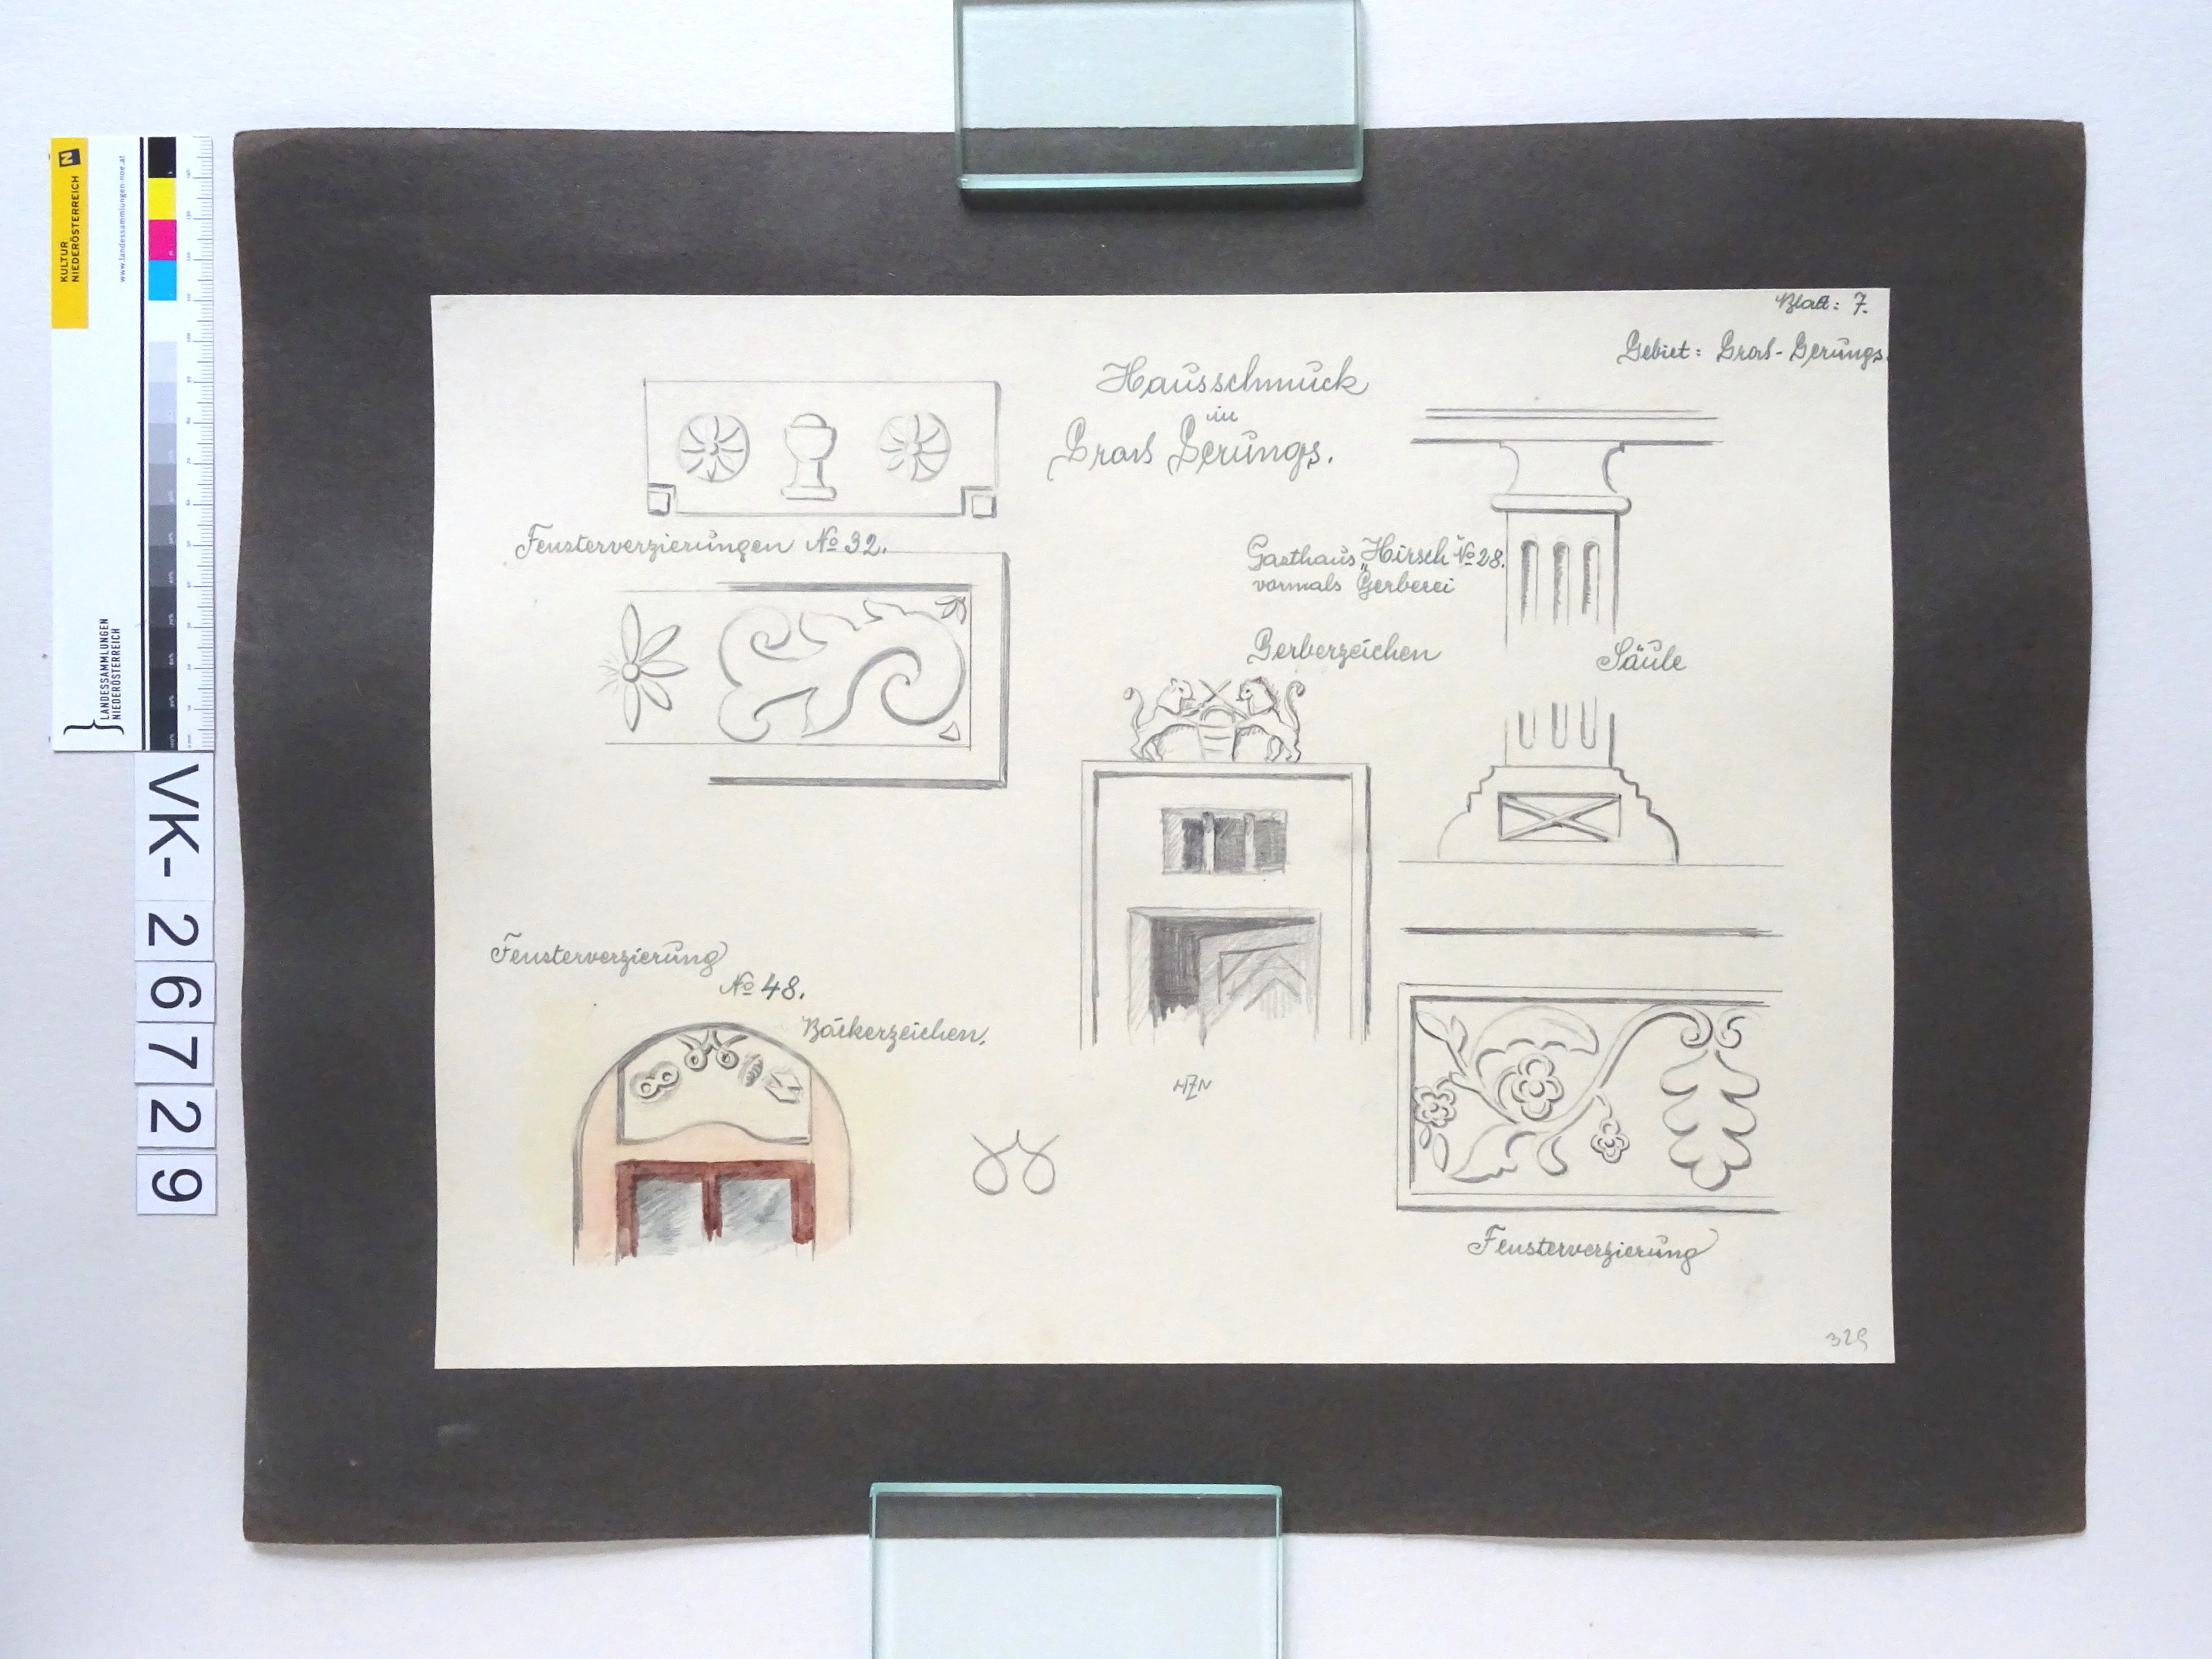 Blatt: 7.
Gebiet: Groß-Gerungs.
Hausschmuck
in
Groß Gerungs.
Fensterverzierungen No 32.
Gasthaus „Hirsch" No 28.
vormals Gerberei
Gerberzeichen
Säule
Fensterverzierung
No 48.
Bäckerzeichen.
Fensterverzierung
329
KULTUR
NIEDERÖSTERREICH
N
www.landessammlungen-noe.at
LANDESSAMMLUNGEN
NIEDERÖSTERREICH
VK-26729